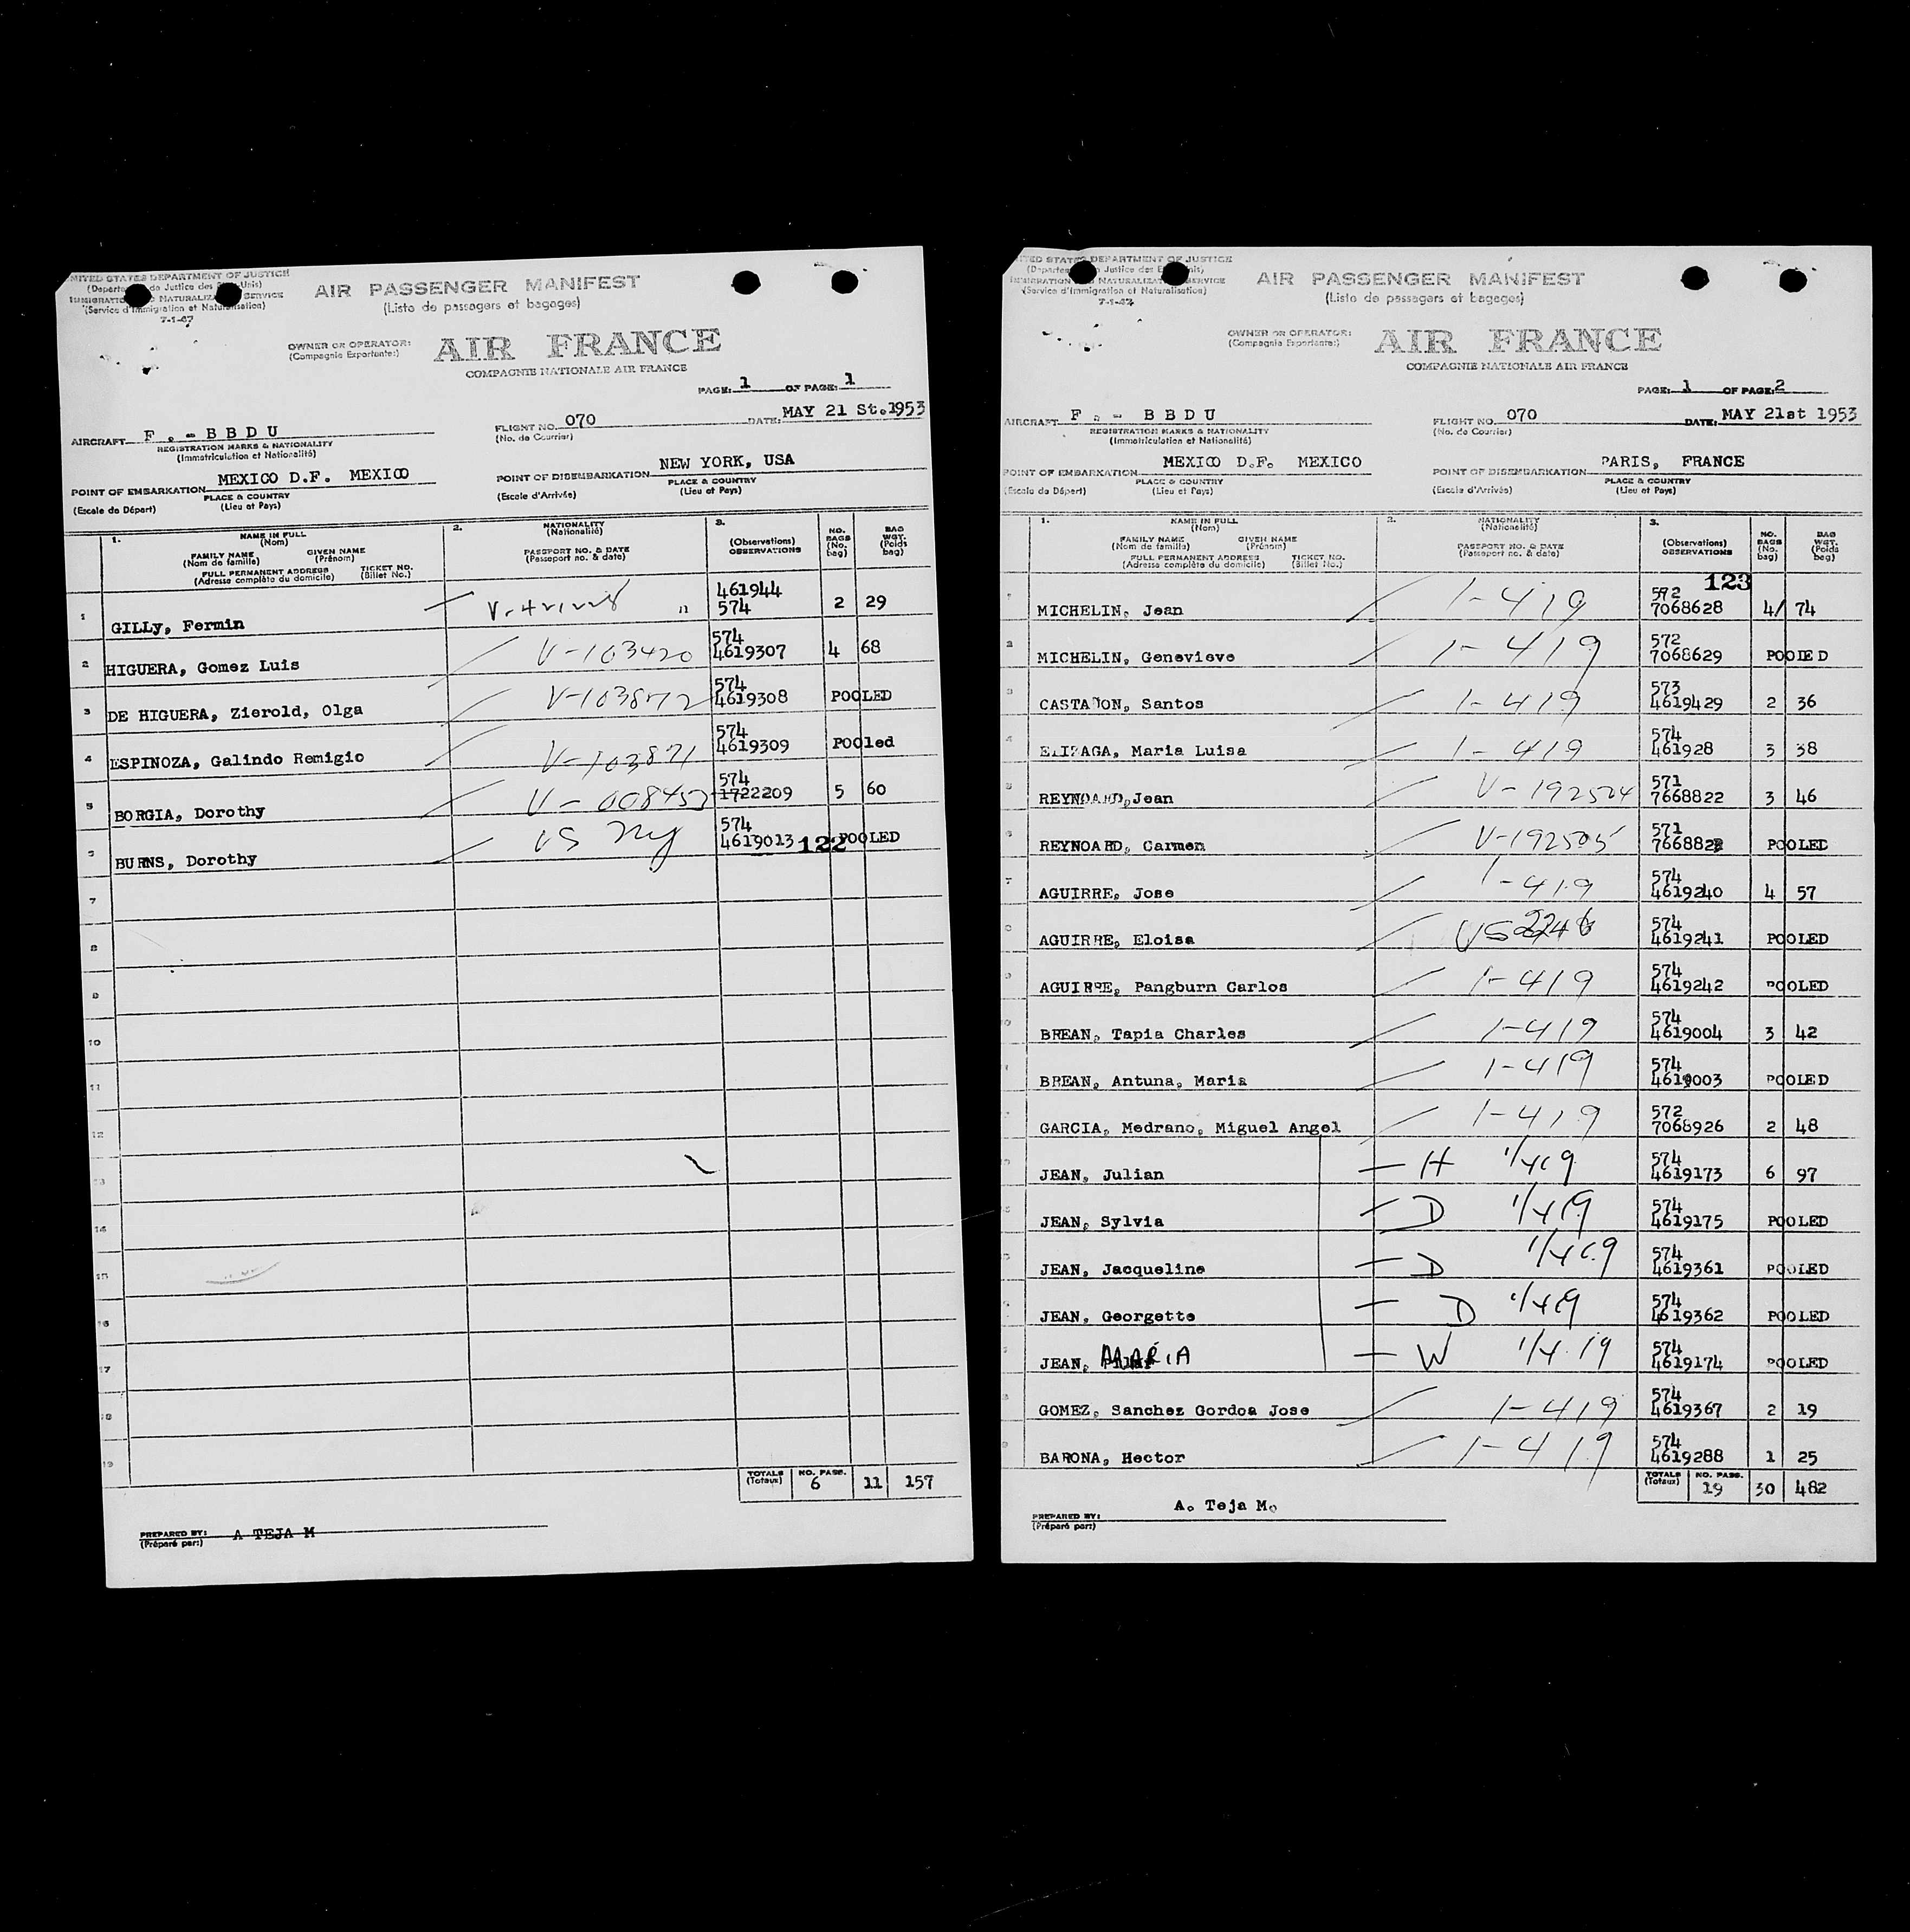 UNITED STATES DEPARTMENT OF JUSTICE
(Departe de Justice des Unis)
IMMIGRATION NATURALIZA SERVICE
(Service d'Immigration et Naturalisation)
7-1-47
AIR PASSENGER MANIFEST
(Liste de passagers et bagages)
OWNER OR OPERATOR:
(Compagnie Exportante:)
AIR FRANCE
COMPAGNIE NATIONALE AIR FRANCE
PAGE: 1 OF PAGE: 1
AIRCRAFT F . - B B D U
REGISTRATION MARKS & NATIONALITY
(Immatriculation et Nationalité)
FLIGHT NO. 070
(No. de Courrier)
DATE: MAY 21 St.1953
POINT OF EMBARKATION MEXICO D.F. MEXICO
PLACE & COUNTRY
(Escale de Départ) (Lieu et Pays)
POINT OF DISEMBARKATION NEW YORK, USA
PLACE & COUNTRY
(Escale d'Arrivée) (Lieu et Pays)
1. NAME IN FULL
(Nom)
FAMILY NAME GIVEN NAME
(Nom de famille) (Prénom)
FULL PERMANENT ADDRESS TICKET NO.
(Adresse complète du domicile) (Billet No.)
2. NATIONALITY
(Nationalité)
PASSPORT NO. & DATE
(Passeport no. & date)
3.
(Observations)
OBSERVATIONS
NO. BAGS (No. bag)
BAG WGT. (Poids bag)
461944
1 GILLy, Fermin 574 2 29
574
2 HIGUERA, Gomez Luis V-103420 4619307 4 68
574
3 DE HIGUERA, Zierold, Olga V-103872 4619308 POOLED
574
4 ESPINOZA, Galindo Remigio V-103871 4619309 POOled
574
5 BORGIA, Dorothy V-008453 1722209 5 60
574
6 BURNS, Dorothy US NY 4619013 122 POOLED
7
8
9
10
11
12
13
14
15
16
17
18
19
TOTALS (Totaux) NO. PASS. 6 11 157
PREPARED BY: A TEJA M
(Préparé par:)
UNITED STATES DEPARTMENT OF JUSTICE
(Departe Justice des Unis)
IMMIGRATION NATURALIZAT SERVICE
(Service d'Immigration et Naturalisation)
7-1-47
AIR PASSENGER MANIFEST
(Liste de passagers et bagages)
OWNER OR OPERATOR:
(Compagnie Exportante:)
AIR FRANCE
COMPAGNIE NATIONALE AIR FRANCE
PAGE: 1 OF PAGE: 2
AIRCRAFT F . - B B D U
REGISTRATION MARKS & NATIONALITY
(Immatriculation et Nationalité)
FLIGHT NO. 070
(No. de Courrier)
DATE: MAY 21st 1953
POINT OF EMBARKATION MEXICO D.F. MEXICO
PLACE & COUNTRY
(Escale de Départ) (Lieu et Pays)
POINT OF DISEMBARKATION PARIS, FRANCE
PLACE & COUNTRY
(Escale d'Arrivée) (Lieu et Pays)
1. NAME IN FULL
(Nom)
FAMILY NAME GIVEN NAME
(Nom de famille) (Prénom)
FULL PERMANENT ADDRESS TICKET NO.
(Adresse complète du domicile) (Billet No.)
2. NATIONALITY
(Nationalité)
PASSPORT NO. & DATE
(Passeport no. & date)
3.
(Observations)
OBSERVATIONS
NO. BAGS (No. bag)
BAG WGT. (Poids bag)
572 123
MICHELIN, Jean 1-419 7068628 4/ 74
572
MICHELIN, Genevieve 1-419 7068629 POOLED
573
CASTAÑON, Santos 1-419 4619429 2 36
574
ELIZAGA, Maria Luisa 1-419 461928 3 38
571
REYNOARD,Jean V-192524 7668822 3 46
571
REYNOARD, Carmen V-192505 766882 POOLED
574
AGUIRRE, Jose 1-419 4619240 4 57
574
AGUIRRE, Eloisa 4619241 POOLED
574
AGUIRRE, Pangburn Carlos 1-419 4619242 POOLED
574
BREAN, Tapia Charles 1-419 4619004 3 42
574
BREAN, Antuna, Maria 1-419 4619003 POOLED
572
GARCIA, Medrano, Miguel Angel 1-419 7068926 2 48
574
JEAN, Julian - H 1/419 4619173 6 97
574
JEAN, Sylvia - D 1/419 4619175 POOLED
574
JEAN, Jacqueline - D 1/419 4619361 POOLED
574
JEAN, Georgette - D 1/419 4619362 POOLED
574
JEAN, MARIA - W 1/419 4619174 POOLED
574
GOMEZ, Sanchez Gordoa Jose 1-419 4619367 2 19
574
BARONA, Hector 1-419 4619288 1 25
TOTALS (Totaux) NO. PASS. 19 30 482
A. Teja M.
PREPARED BY:
(Préparé par:)